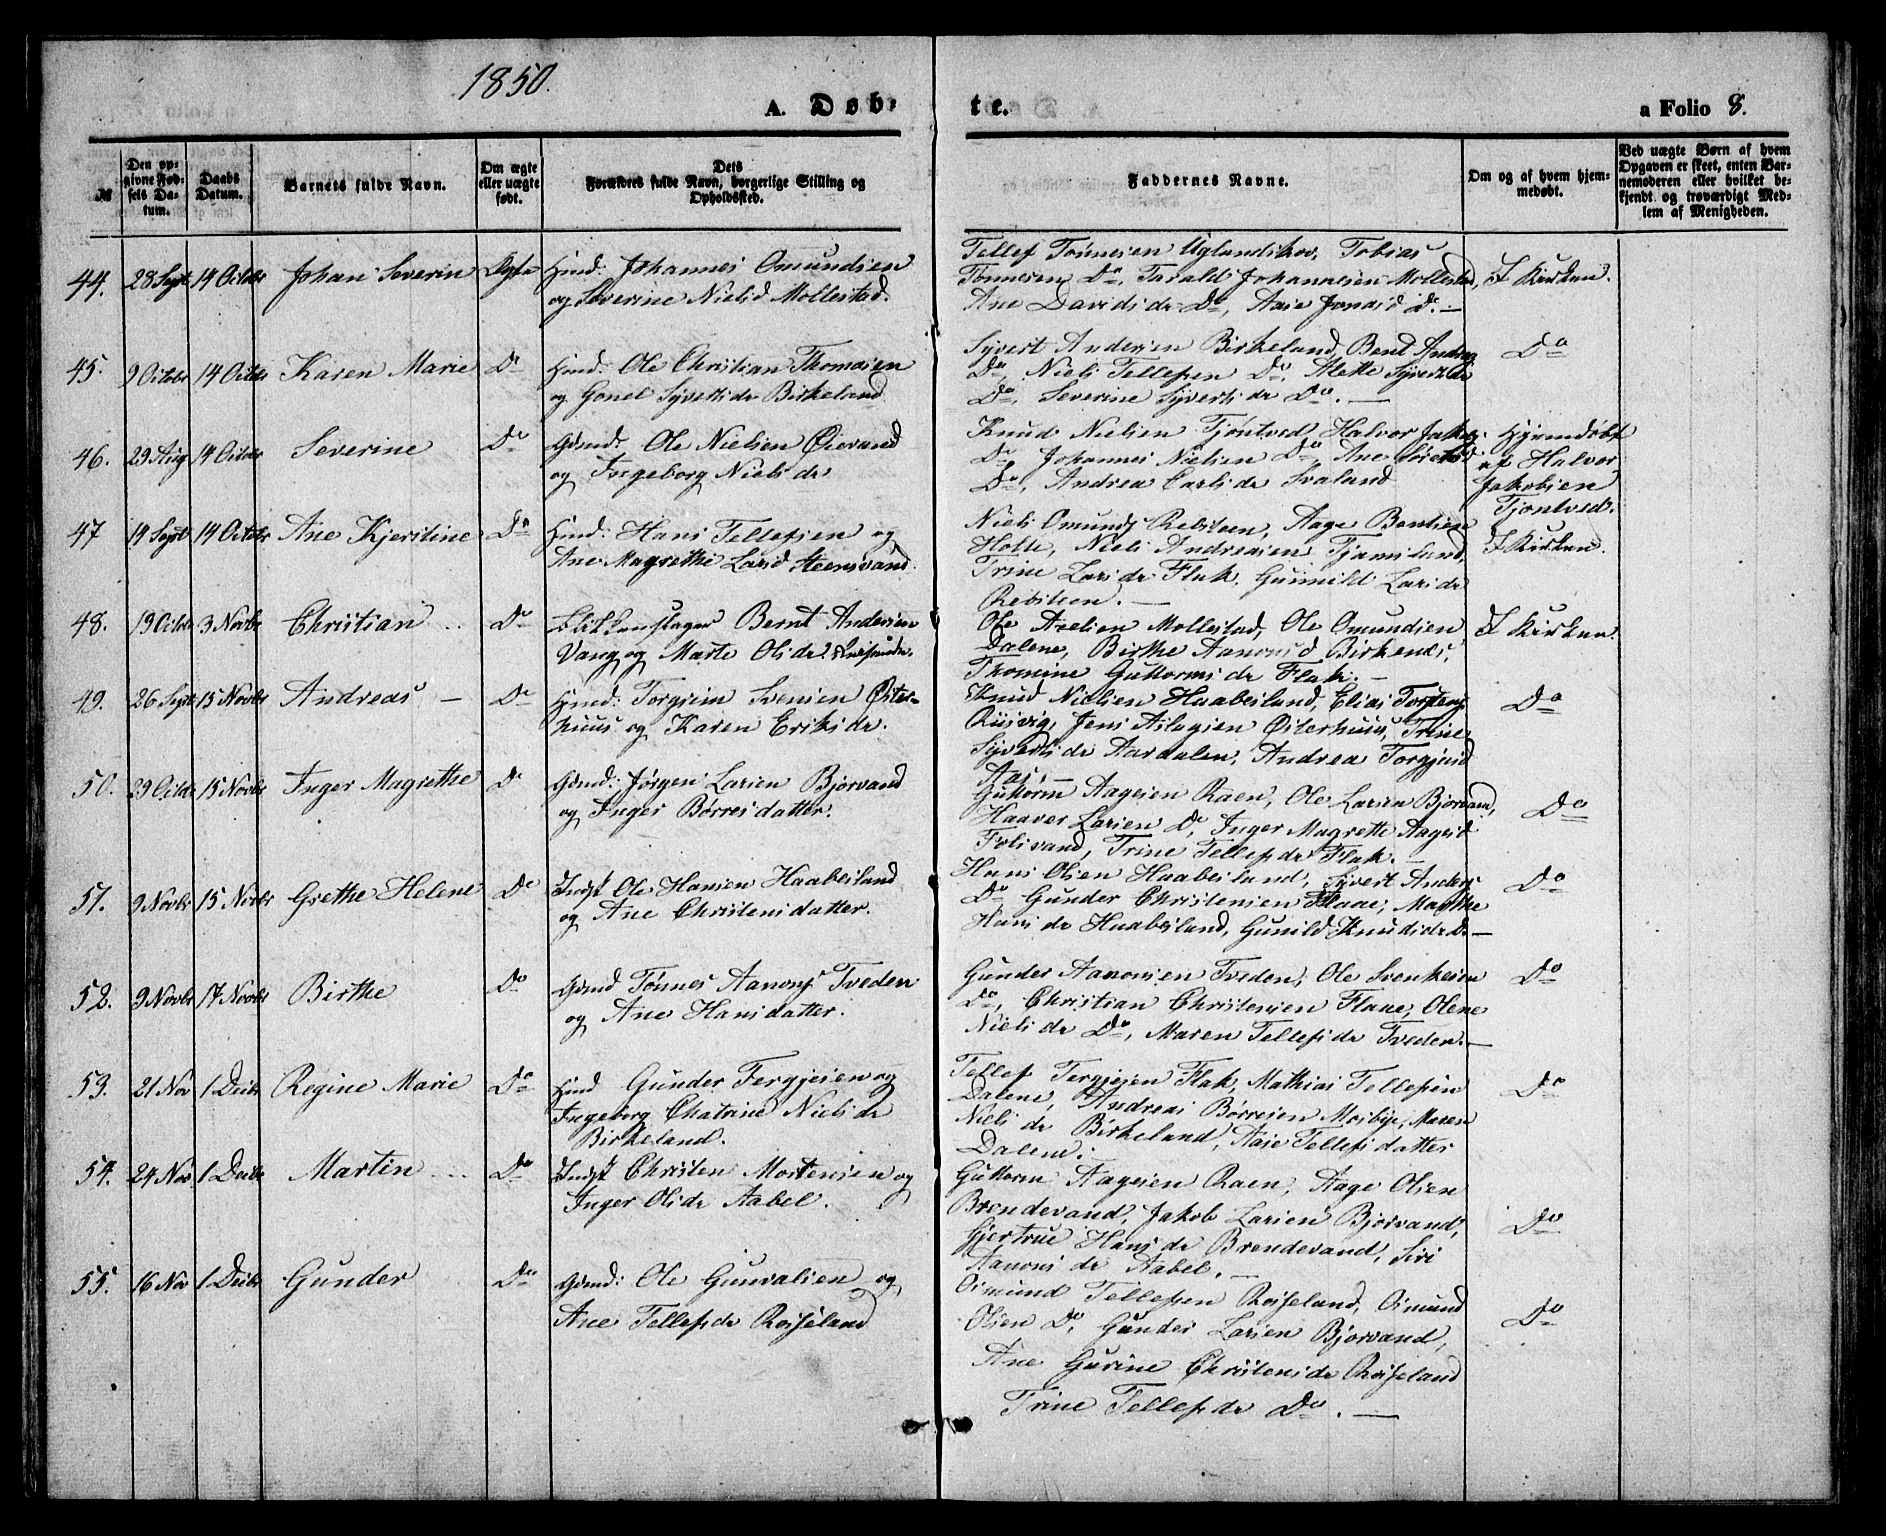 1850.
A. Døb-
te.
a Folio 8.
№
Den op-
givne Fød-
sels Da-
tum.
Daabs
Datum.
Barnets fulde Navn.
Om ægte
eller uægte
født.
Dets
Forældres fulde Navn, borgerlige Stilling og
Opholdssted.
Faddernes Navne.
Om og af hvem hjem-
medøbt.
Ved uægte Børn af hvem
Opgaven er skeet, enten Bar-
nemoderen eller hvilket be-
kjendt og troværdigt Med-
lem af Menigheden.
44. 28 Sept 14 Octobr Johan Severin Ægte Huusd: Johannes Omundsen
og Severine Nielsd Mollestad.
Tellef Tønnesen Uglandskov, Tobias
Tønnesen Do, Tarald Johannesen Mollestad,
Ane Davidsdr Do, Aase Jonasd Do. —
I Kirken.
45. 9 Octobr 14 Octobr Karen Marie Do Huusd: Ole Christian Thomasen
og Gonel Syvertsdr Birkeland
Syvert Andersen Birkeland, Bent Anders
Do, Niels Tellefsen Do, Alette Syvertsdr
Do, Severine Syvertsdr Do. —
Do
46. 29 Aug 14 Octobr Severine Do Gbmd: Ole Nielsen Øievand
og Ingeborg Nielsdr
Knud Nielsen Tjøntved, Halvor Jakobs
Do, Johannes Nielsen Do, Ane
Do, Andrea Carlsdr Svaland
Hjemdøbt
af Halvor
Jakobsen
Tjøntved.
47 14 Sept 14 Octobr Ane Kjerstine Do Huusd: Hans Tellefsen og
Ane Magrethe Larsd Steensvand.
Niels Omunds Rebsteen, Aage Bentsen
Holte, Niels Andreasen Tjamsland,
Trine Larsdr Flak, Gunnild Larsdr
Rebsteen. —
I Kirken.
48. 19 Octbr 3 Novbr Christian Do Blikkenslager Bernt Andersen
Vang og Marte Olsdr
Ole Axelsen Mollestad, Ole Omundsen
Dalene, Birthe Aanonsd Birkenes,
Thomine Guttormsdr Flak. —
I Kirken.
49. 26 Sept 15 Novbr Andreas — Do Huusd: Torgrim Svensen Øster-
huus og Karen Eriksdr.
Knud Nielsen Haabesland, Elias Torstens
Riisvig, Jens Aslagsen Østerhuus, Trine
Syvertsdr Aardalen, Andrea Torgjusd
Aas. —
Do
50. 29 Octbr 15 Novbr Inger Magrethe Do Gbmd: Jørgen Larsen Bjorvand
og Inger Børresdatter.
Guttorm Aagesen Raen, Ole Larsen Bjorvand,
Haaver Larsen Do, Inger Magrette Aagesd
Folsvand, Trine Tellefsdr Flak. —
Do
51. 9 Novbr 15 Novbr Grethe Helene Do Indst Ole Hansen Haabesland
og Ane Christensdatter.
Hans Olsen Haabesland, Syvert Anders
Do Gunder Christensen Flaae, Marthe
Hansdr Haabesland, Gunild Knudsdr Do —
Do
52. 9 Novbr 17 Novbr Birthe Do Gbmd Tønnes Aanons Tveden
og Ane Hansdatter.
Gunder Aanonsen Tveden, Ole Svenkesen
Do, Christian Christensen Flaae, Olene
Nielsdr Do, Maren Tellefsdr Tveden. —
Do
53. 21 Nov 1 Decbr Regine Marie Do Huusd Gunder Tergjesen og
Ingeborg Chatrine Nielsdr
Birkeland.
Tellef Tergjesen Flak, Mathias Tellefsen
Dalene, Andreas Børresen Mosbye, Maren
Nielsdr Birkeland, Aase Tellefsdatter
Dalene. —
Do
54. 24 Nov 1 Decbr Martin Do Indst Christen Mortensen og
Inger Olsdr Aabel.
Guttorm Aagesen Raen, Aage Olsen
Brendevand, Jakob Larsen Bjorvand,
Gjertrue Hansdr Brendevand, Siri
Aanonsdr Aabel. —
Do
55. 16 Nov 1 Decbr Gunder Do Gbmd: Ole Gunvalsen og
Ane Tellefsdr Røiseland
Osmund Tellefsen Røiseland, Osmund
Olsen Do, Gunder Larsen Bjorvand,
Ane Gurine Christensdr Røiseland
Trine Tellefsdr Do. —
Do